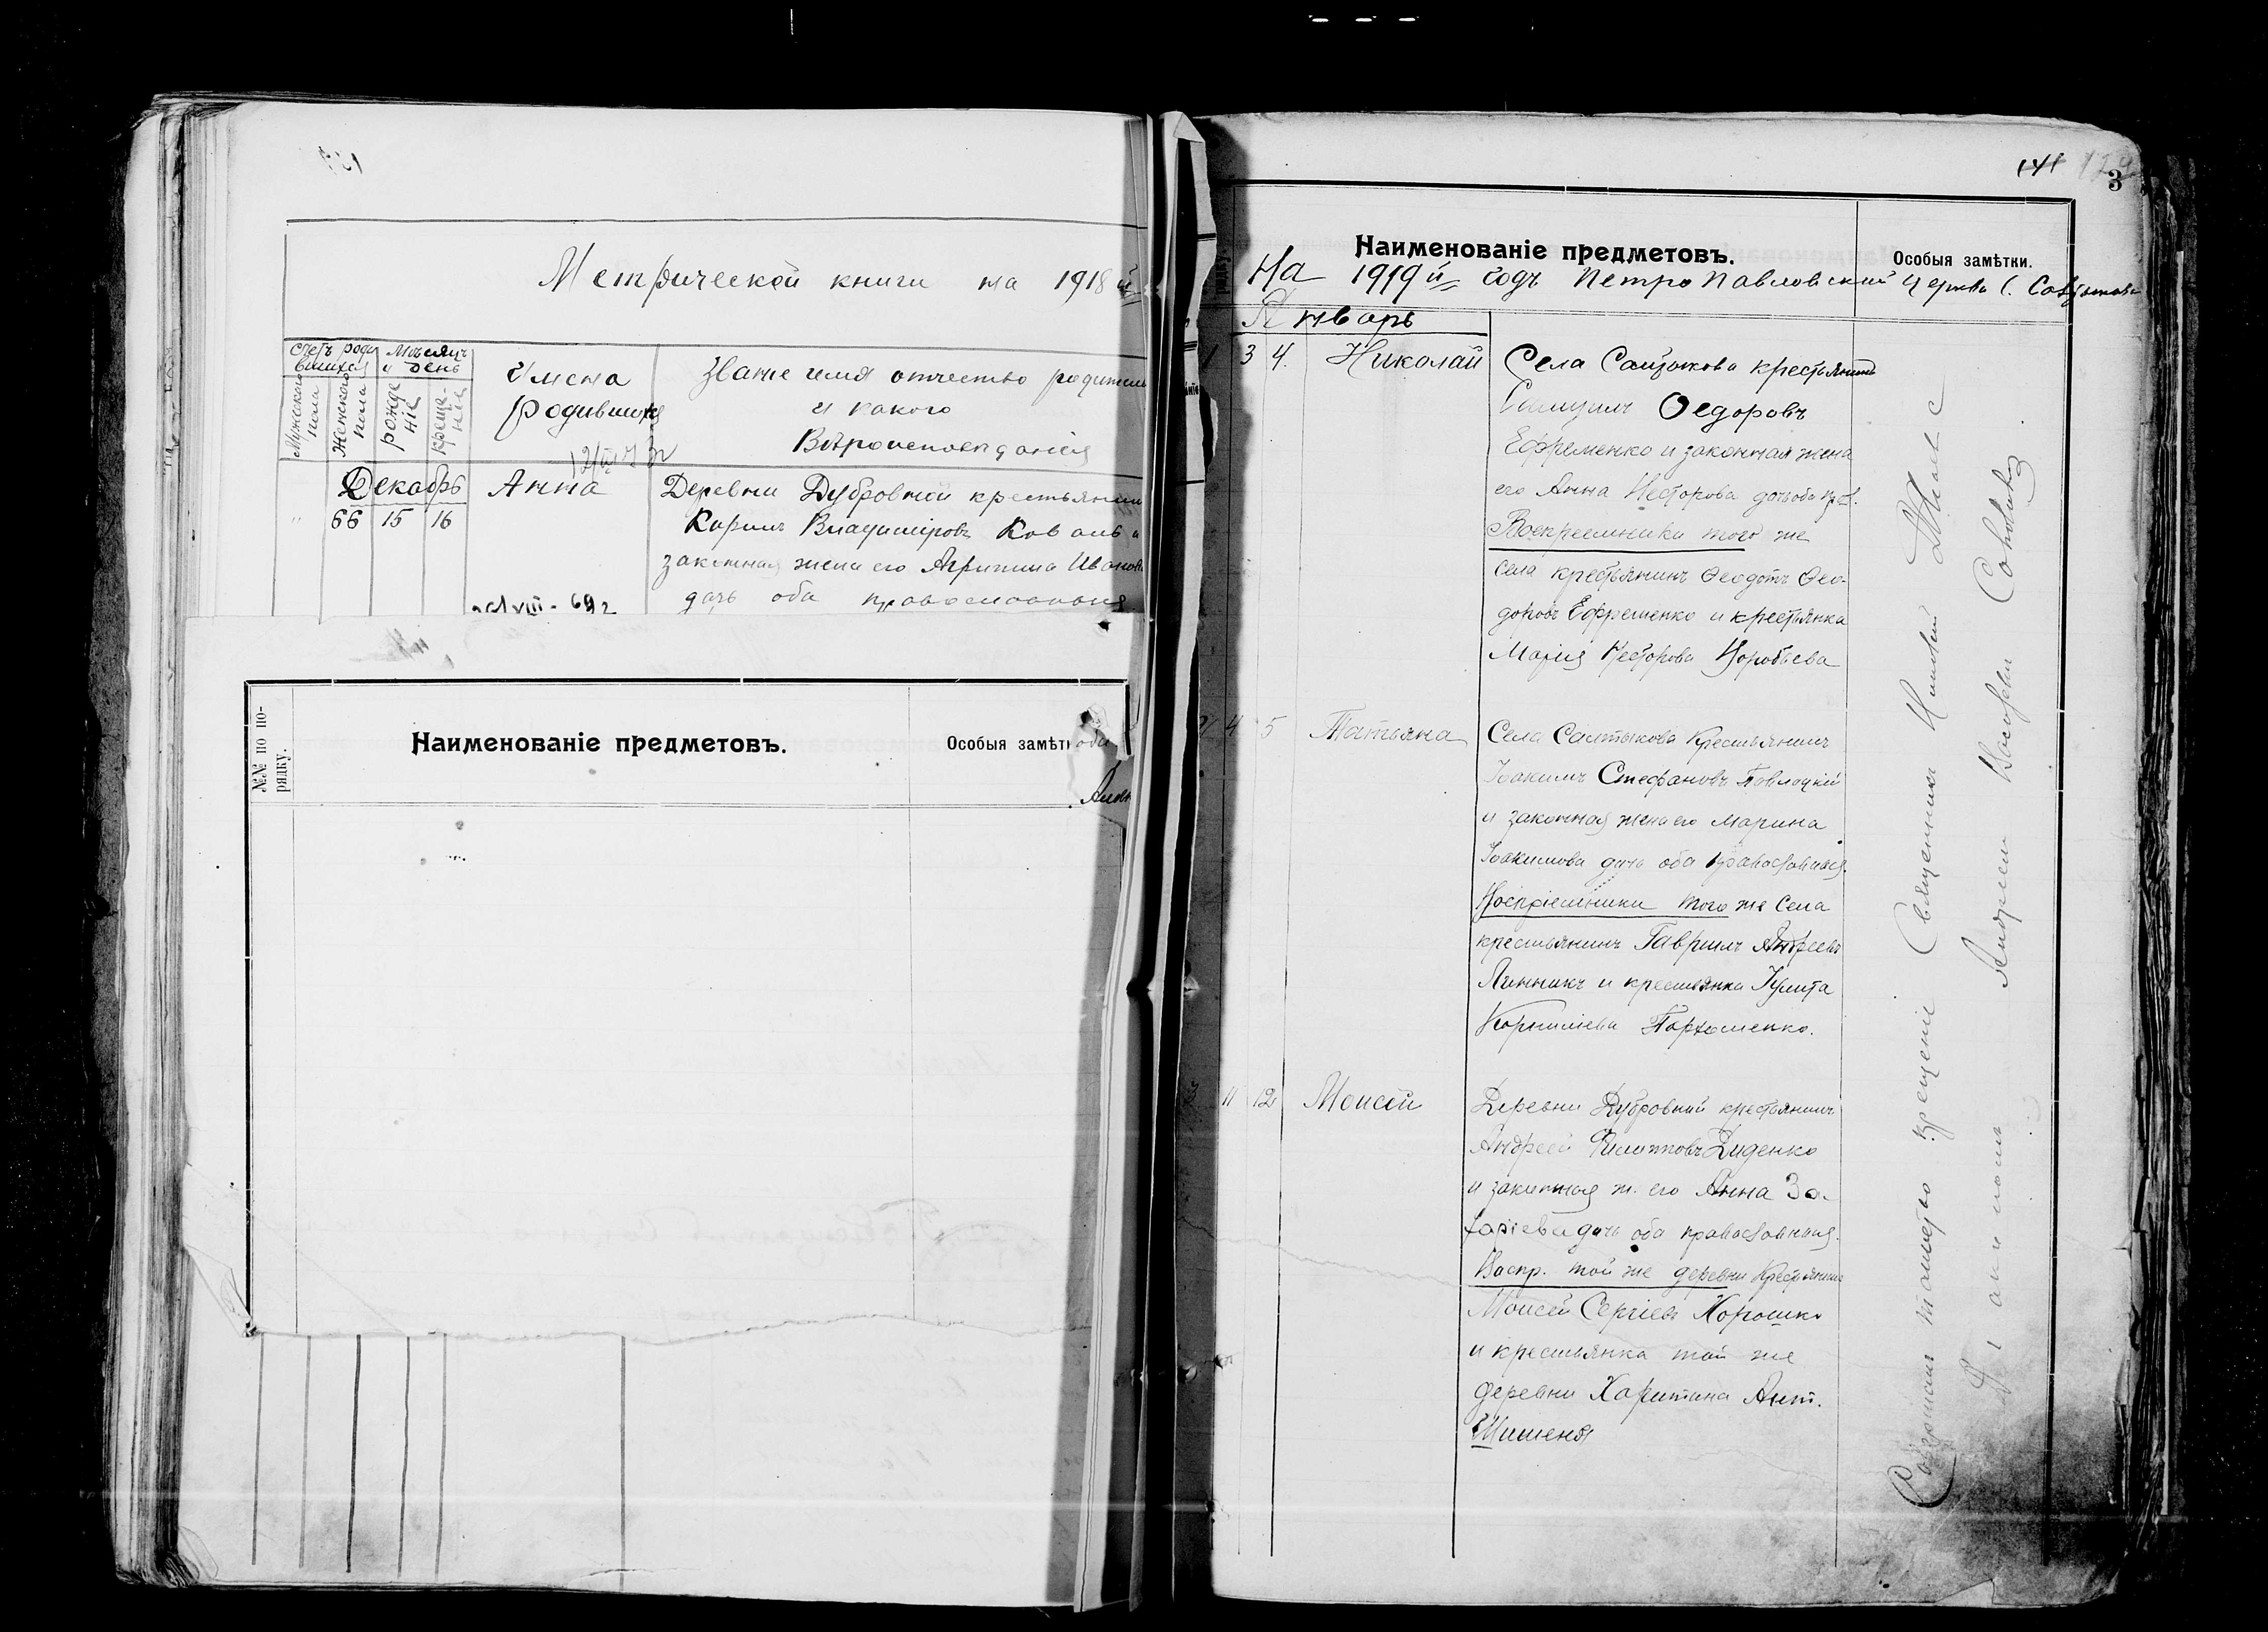 Метрической книги на 1918й
Счетъ роди
вшихся
Мѣсяцъ
и день
Мужского
пола
Женского
пола
рожде
ніе
креще-
ніе
Имена
родившихся
Званіе имя отчество родителей
и какого
Вѣроисповѣданія
Декабрь
66 15 16
Анна
Деревни Дубровной крестьянинъ
Карпъ Владиміровъ Коваль и
законная жена его Агрипина Иванова
дочь оба православныя
VIII - 69 г
№№ по по-
рядку.
Наименованіе предметовъ.
Особыя замѣтк
оба
141
3
Наименованіе предметовъ.
Особыя замѣтки.
На 1919й годъ Петро Павловской Церкви С. Салтыкова
Январь
1 3 4.
Николай
Села Салтыкова крестьянинъ
Самуилъ Ѳедоровъ
Ефременко и законная жена
его Анна Несторова дочь оба пр.
Воспреемники того же
села крестьянинъ Ѳеодотъ Ѳео-
доровъ Ефременко и крестьянка
Марія Несторова Воробьева
4 5
Татьяна
Села Салтыкова крестьянинъ
Іоакимъ Стефановъ Павлоцкій
и законная жена его Марина
Іоакимова дочь оба православныя.
Воспріемники того же села
крестьянинъ Гавріилъ Андреевъ
Линникъ и крестьянка Іулита
Корниліева Пархоменко.
11 12
Моисей
Деревни Дубровной крестьянинъ
Андрей Филипповъ Диденко
и законная ж. его Анна За-
харіева дочь оба православныя.
Воспр. той же деревни крестьянинъ
Моисей Сергіевъ Хорошко
и крестьянка той же
деревни Харитина Ант.
Шишеня
Совершилъ таинство крещенія Священникъ Николай
Діакономъ Андреемъ